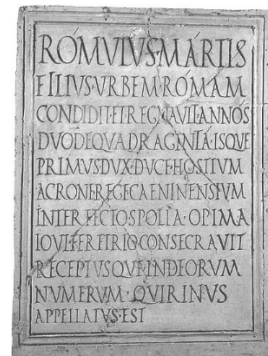 ROMVLVS·MARTIS
FILIVS·VRBEM·ROMAM
CONDIDIT·ET·REGNAVIT·ANNOS
DVODEQVADRAGINTA·ISQVE
PRIMVS·DVX·DVCE·HOSTIVM
ACRONE·REGE·CAENINENSIVM
INTERFECTO·SPOLIA·OPIMA
IOVI·FERETRIO·CONSECRAVIT
RECEPTVSQVE·IN·DEORVM
NVMERVM·QVIRINVS
APPELLATVS·EST